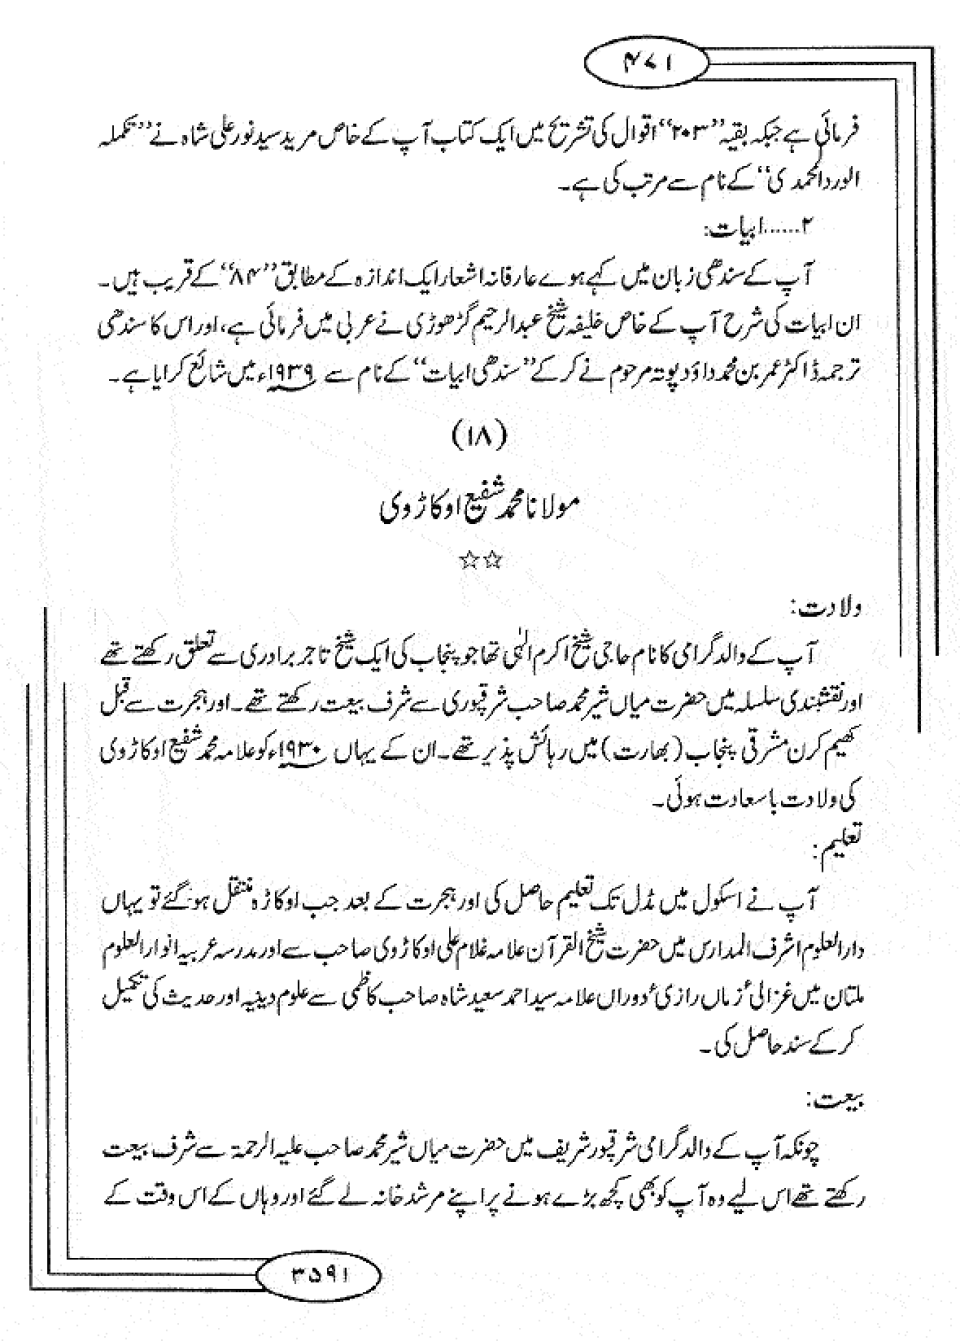 ۴۷۱
فرمائی ہے جبکہ بقیہ ”۲۰۳“ اقوال کی تشریح میں ایک کتاب آپ کے خاص مرید سید نور علی شاہ نے ”تکملہ
الورد المحمدی“ کے نام سے مرتب کی ہے۔
۲......ابیات:
آپ کے سندھی زبان میں کہے ہوے عارفانہ اشعار ایک اندازہ کے مطابق ”۸۴“ کے قریب ہیں۔
ان ابیات کی شرح آپ کے خاص خلیفہ شیخ عبدالرحیم گرھوڑی نے عربی میں فرمائی ہے، اور اس کا سندھی
ترجمہ ڈاکٹر عمر بن محمد داؤد پوتہ مرحوم نے کر کے ”سندھی ابیات“ کے نام سے ۱۹۳۹ء میں شائع کرایا ہے۔
(۱۸)
مولانا محمد شفیع اوکاڑوی
☆☆
ولادت:
آپ کے والد گرامی کا نام حاجی شیخ اکرم الٰہی تھا جو پنجاب کی ایک شیخ تاجر برادری سے تعلق رکھتے تھے
اور نقشبندی سلسلہ میں حضرت میاں شیر محمد صاحب شرقپوری سے شرف بیعت رکھتے تھے۔ اور ہجرت سے قبل
کھیم کرن مشرقی پنجاب (بھارت) میں رہائش پذیر تھے۔ ان کے یہاں ۱۹۳۰ء کو علامہ محمد شفیع اوکاڑوی
کی ولادت باسعادت ہوئی۔
تعلیم:
آپ نے اسکول میں مڈل تک تعلیم حاصل کی اور ہجرت کے بعد جب اوکاڑہ منتقل ہو گئے تو یہاں
دارالعلوم اشرف المدارس میں حضرت شیخ القرآن علامہ غلام علی اوکاڑوی صاحب سے اور مدرسہ عربیہ انوار العلوم
ملتان میں غزالیٔ زماں رازیٔ دوراں علامہ سید احمد سعید شاہ صاحب کاظمی سے علوم دینیہ اور حدیث کی تکمیل
کر کے سند حاصل کی۔
بیعت:
چونکہ آپ کے والد گرامی شرقپور شریف میں حضرت میاں شیر محمد صاحب علیہ الرحمۃ سے شرف بیعت
رکھتے تھے اس لیے وہ آپ کو بھی کچھ بڑے ہونے پر اپنے مرشد خانہ لے گئے اور وہاں کے اس وقت کے
۳۵۹۱